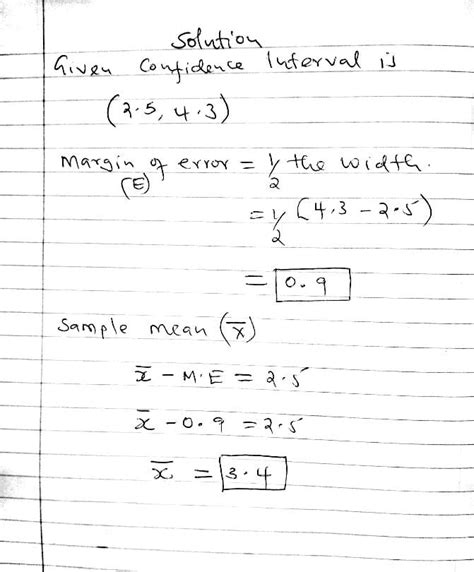 Solution
Given Confidence Interval is
(2.5, 4.3)
Margin of error = 1/2 the width.
(E)
= 1/2 (4.3 - 2.5)
= 0.9
Sample mean (x̄)
x̄ - M.E = 2.5
x̄ - 0.9 = 2.5
x̄ = 3.4